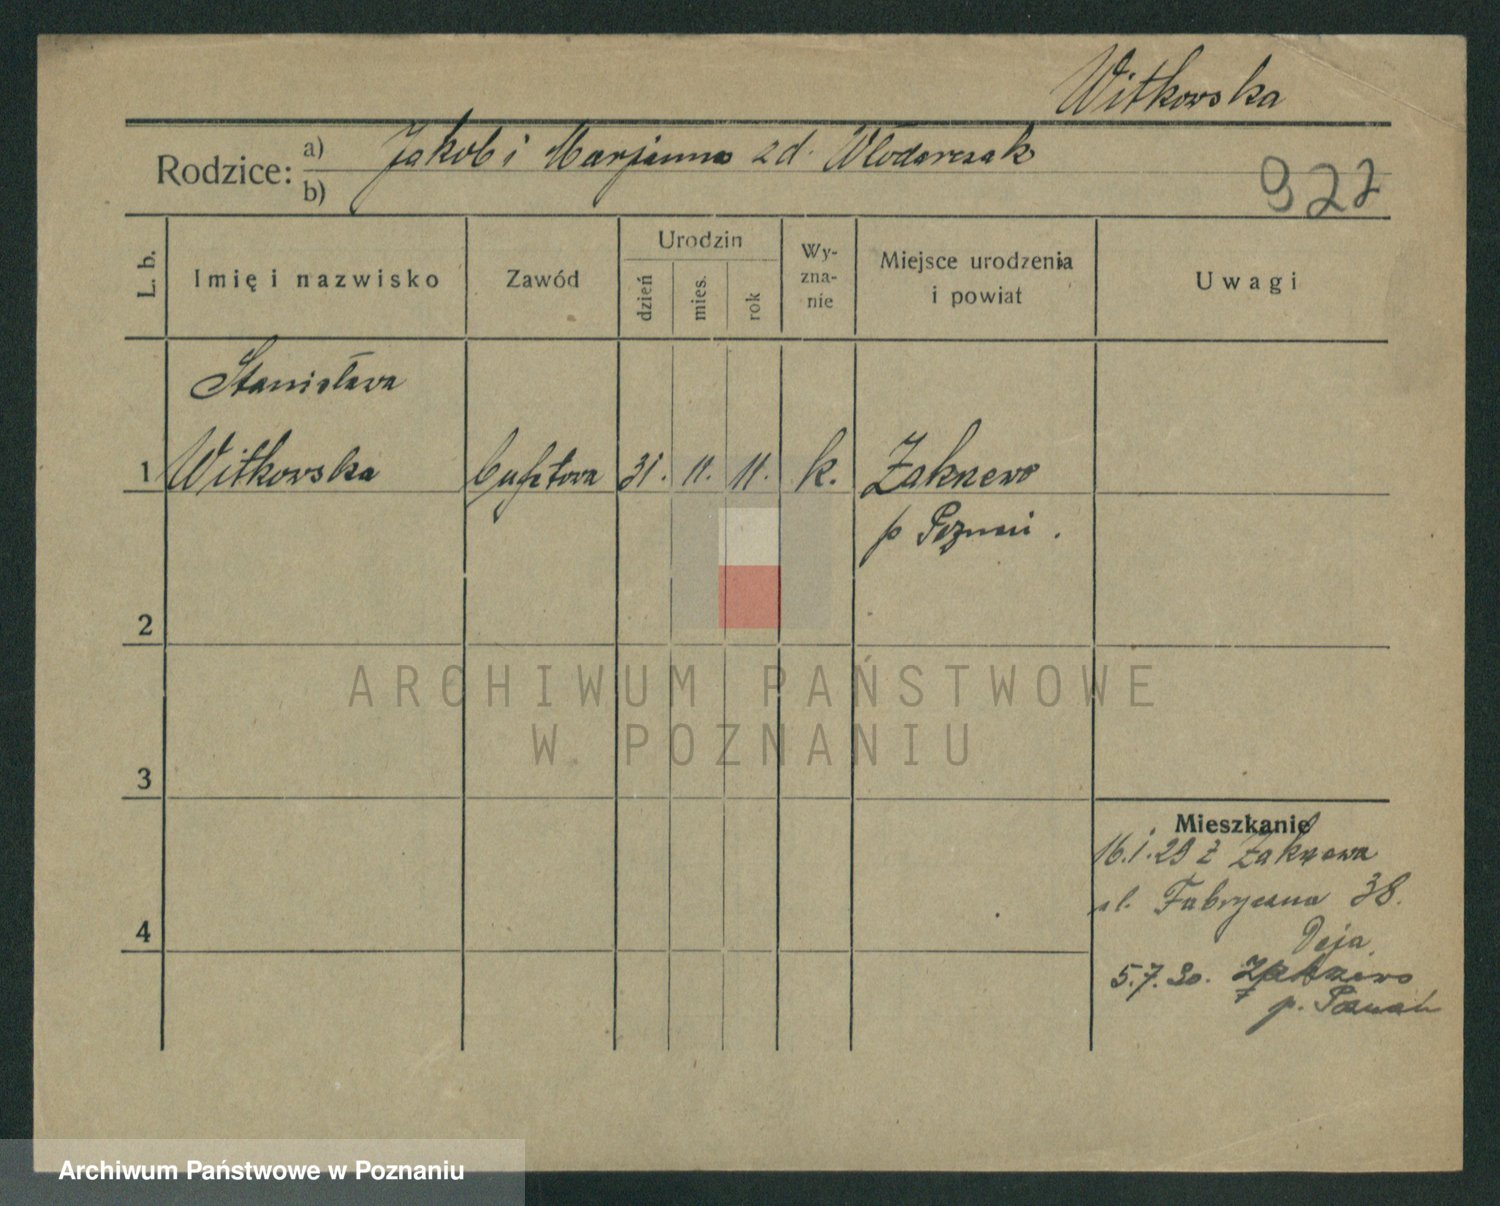 Witkowska
Rodzice: a) Jakob i Marjanna zd. Włodarczak
b)
922
L. b.
Imię i nazwisko
Zawód
Urodzin
dzień
mies.
rok
Wy-
zna-
nie
Miejsce urodzenia
i powiat
Uwagi
Stanisława
1 Witkowska bufetowa 31. 11. 11. k. Zakrzewo
p Poznań.
2
ARCHIWUM PAŃSTWOWE
W POZNANIU
3
Mieszkanie
16.1.29 z Zakrzewa
ul. Fabryczna 38.
Deja
4
5.7.30. Zakrzewo
p. Poznań
Archiwum Państwowe w Poznaniu